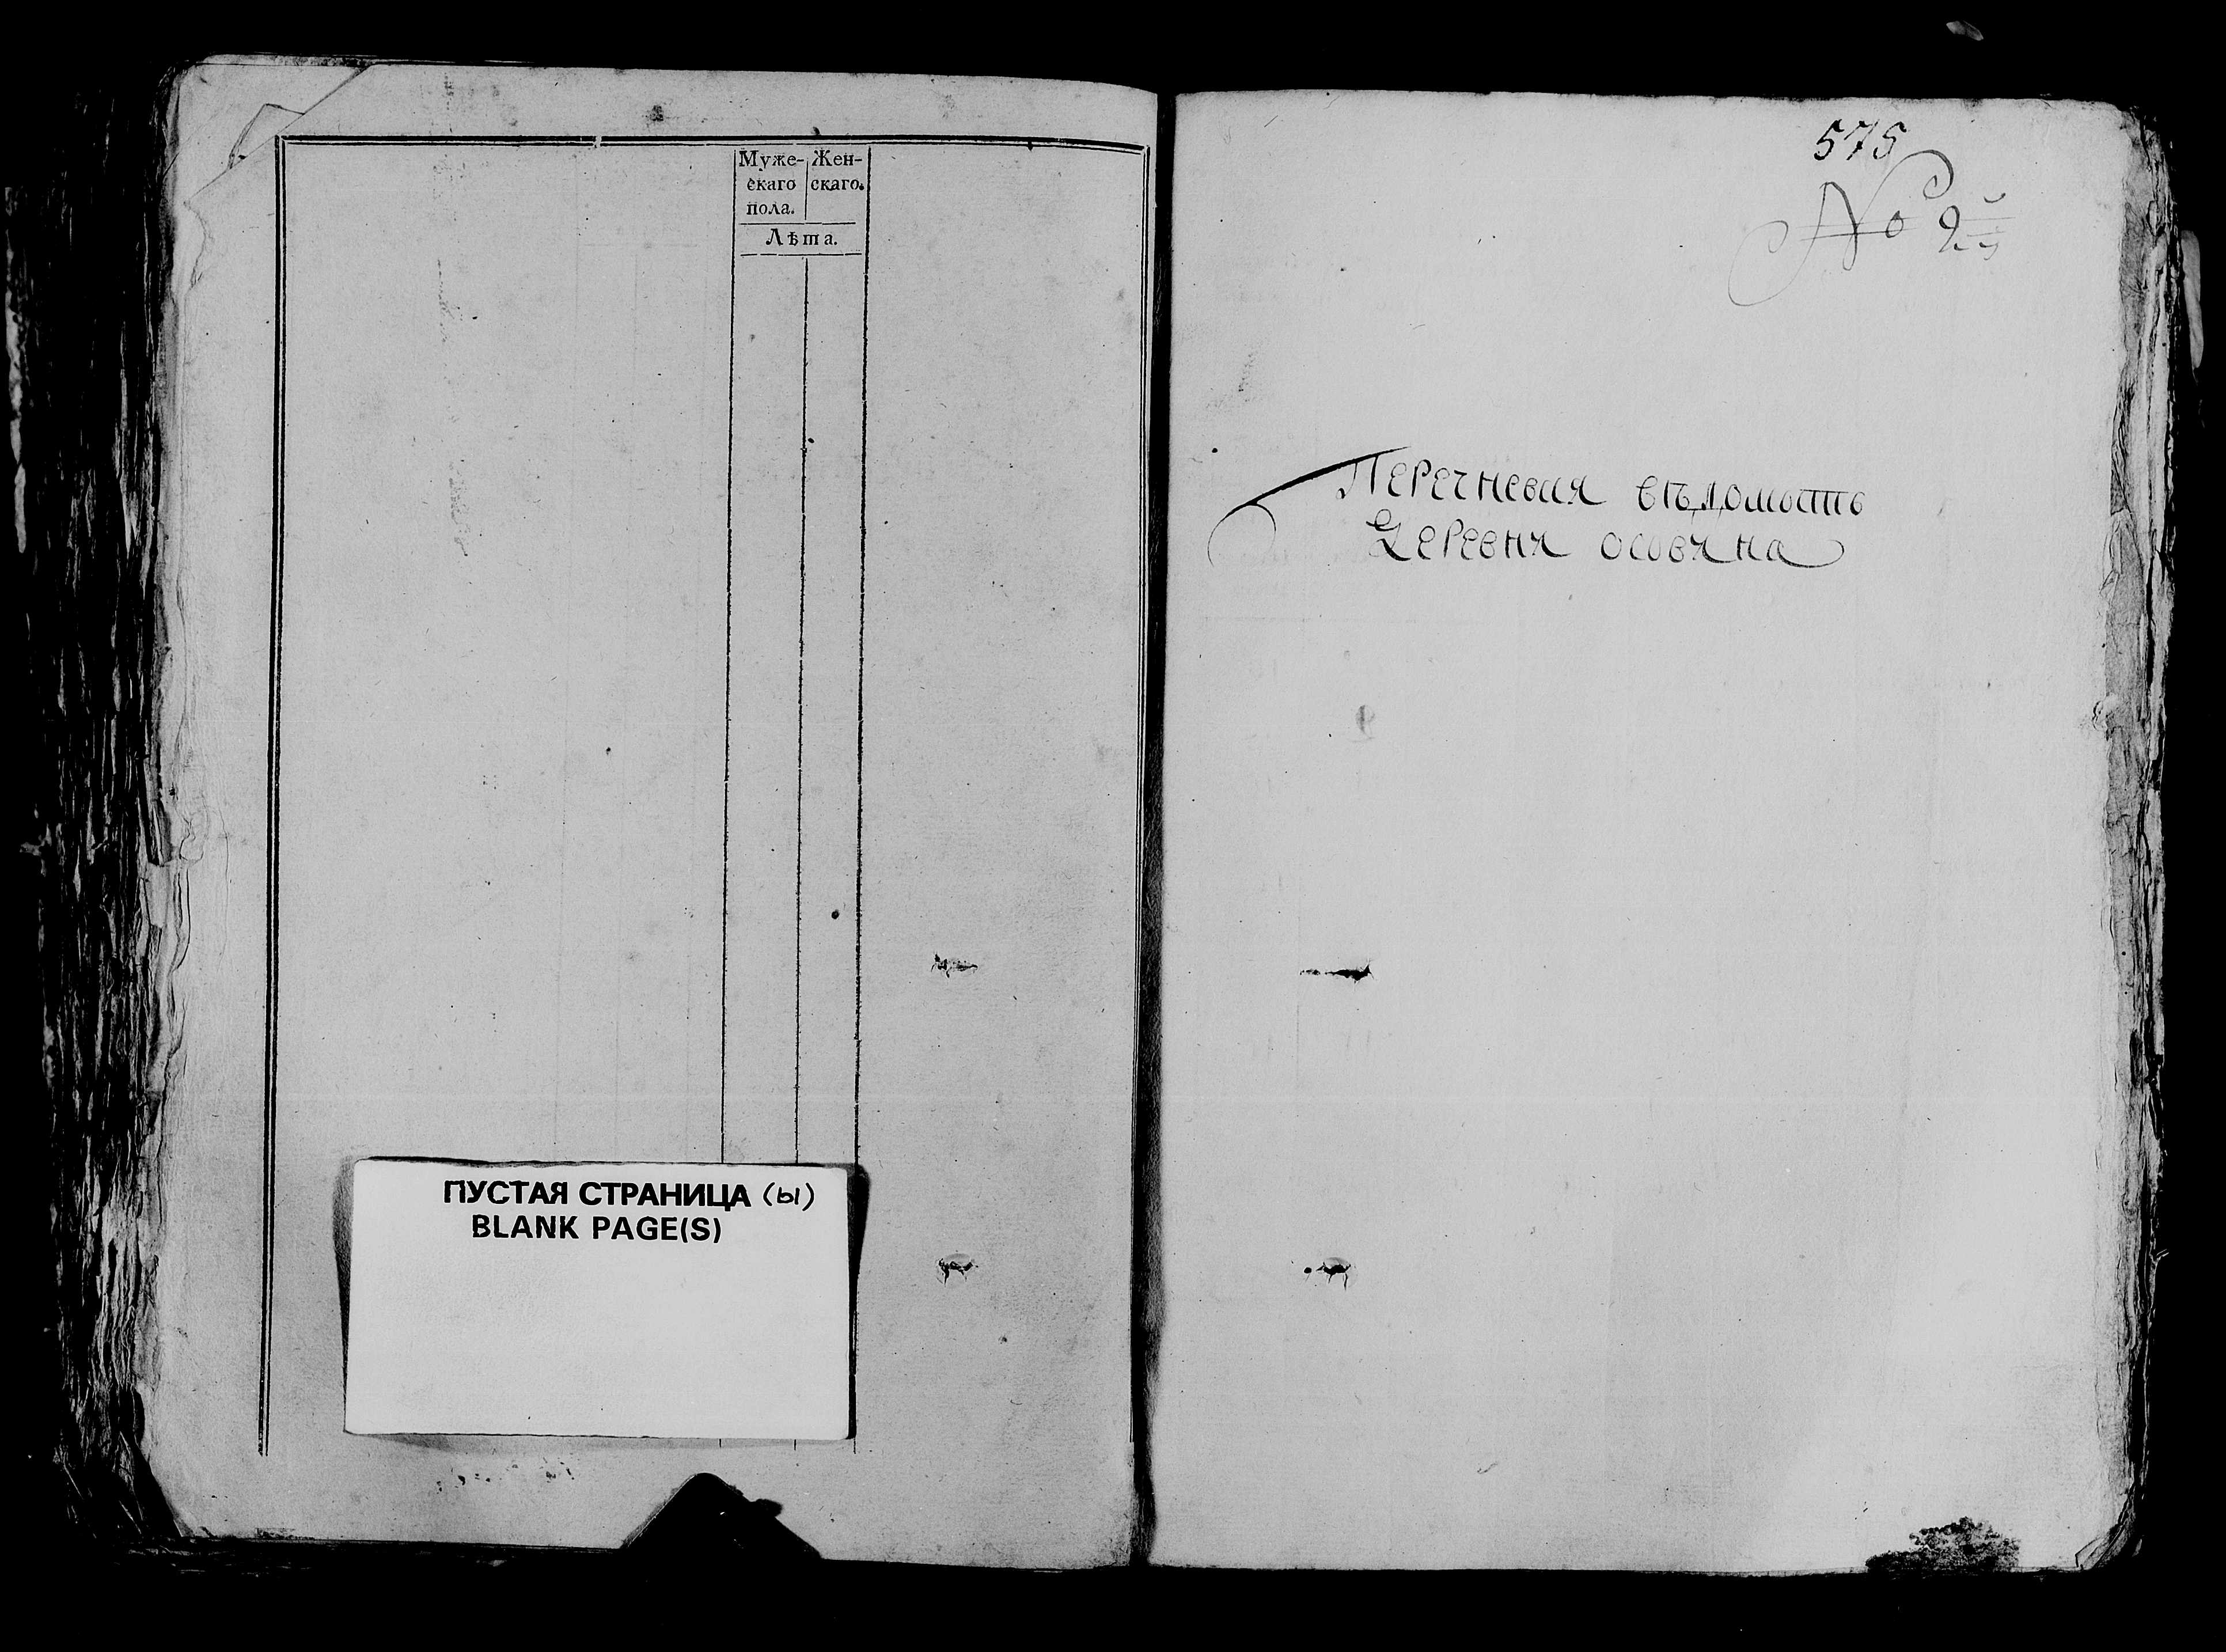 Муже- Жен-
скаго скаго.
пола.
Лѣта.
ПУСТАЯ СТРАНИЦА (Ы)
BLANK PAGE(S)
575
No 9й
Перечневая вѣдомость
Деревня осовяна